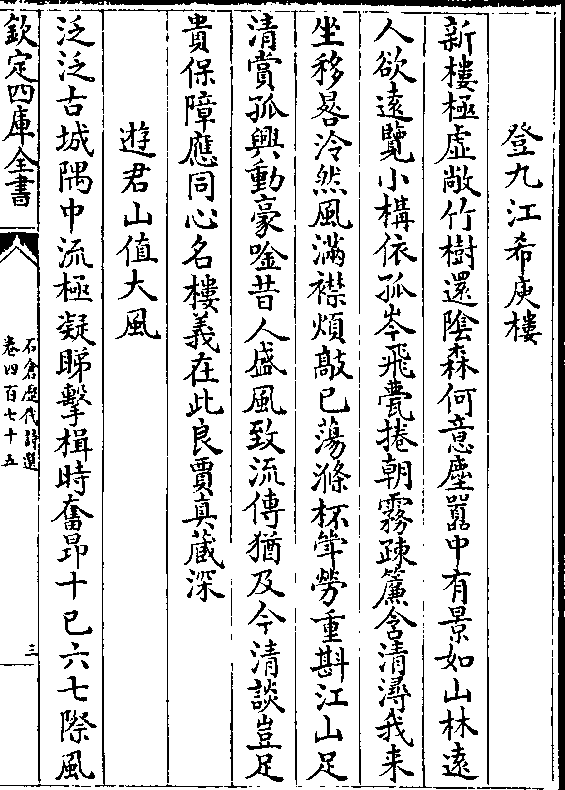 登九江希庾樓
新樓極虛敞竹樹還陰森何意塵囂中有景如山林遠
人欲遠覽小構依孤岑飛甍捲朝霧疎簾含清潯我来
坐移晷泠然風滿襟煩歊已蕩滌杯斝勞重斟江山足
清賞孤興動豪唫昔人盛風致流傳猶及今清談豈足
貴保障應同心名樓義在此良賈真蔵深
遊君山值大風
泛泛古城隅中流極凝睇擊楫時奮昂十已六七際風
欽定四庫全書
石倉歴代詩選
卷四百七十五
三